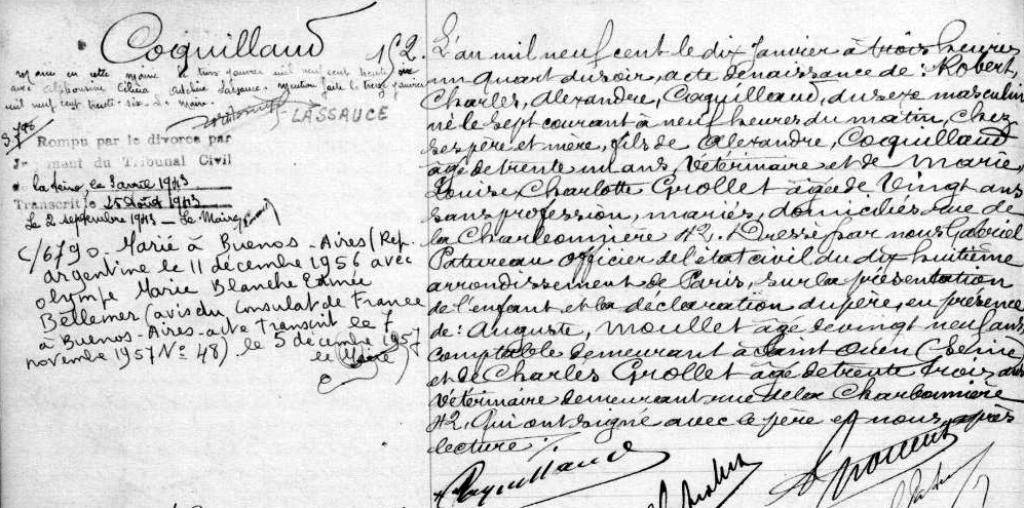 Coquillaud
152.
mil neuf cent trente-six
LASSAUCE
Rompu par le divorce par
Jugement du Tribunal Civil
la Seine, le 3 avril 1943
Transcrit le 25 Août 1943
Le 2 septembre 1943 - Le Maire
C/6790. Marié à Buenos-Aires (Rep.
argentine le 11 décembre 1956 avec
Olympe Marie Blanche Edmée
Bellemer (avis du Consulat de France
à Buenos-Aires-acte transcrit le 7
novembre 1957 N° 48) le 5 décembre 1957
Le Maire
L'an mil neuf cent le dix Janvier à trois heures
un quart du soir, acte de naissance de: Robert,
Charles, Alexandre, Coquillaud, du sexe masculin
né le sept courant à neuf heures du matin, chez
ses père et mère, fils de Alexandre, Coquillaud
âgé de trente un ans, Vétérinaire et de Marie,
Louise, Charlotte Grollet âgée de Vingt ans
sans profession, mariés, domiciliés rue de
la Charbonnière 42. Dressé par nous Gabriel
Patureau Officier de l'état civil du dix huitième
arrondissement de Paris, sur la présentation
de l'enfant et la déclaration du père, en présence
de: Auguste, Moullet âgé de vingt neuf ans
comptable demeurant à Saint Ouen (Seine)
et de Charles Grollet âgé de trente trois ans
Vétérinaire demeurant rue de la Charbonnière
42. Qui ont signé avec le père et nous, après
lecture ./.
Coquillaud